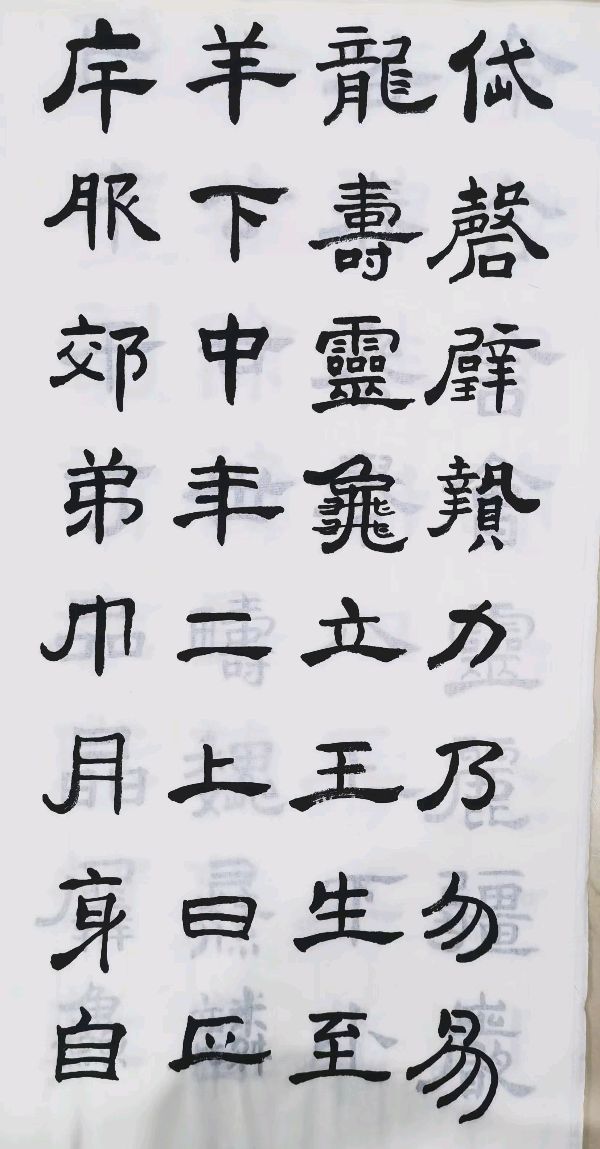 磬璧贄力乃勿易
龍壽靈龜立王生至
羊下中年二上曰正
服郊弟巾月身自